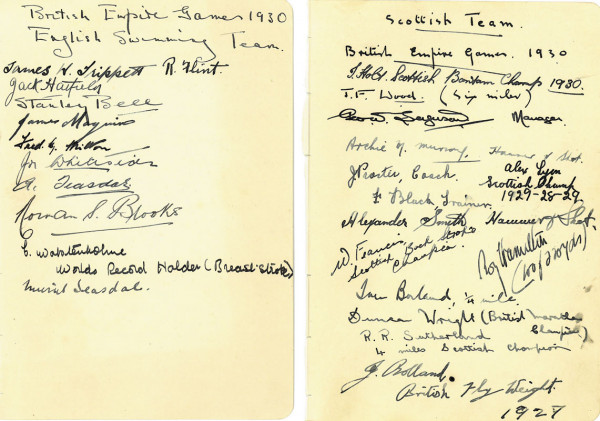 British Empire Games 1930
English Swimming Team.
James H. Trippett R. Flint
Jack Hatfield
Stanley Bell
James Maguire
Fred. G. Milton
Joe Whiteside
A. Teasdale
Norman S. Brooks
C. Wolstenholme
Worlds Record Holder (Breast-stroke)
Muriel Teasdale.
Scottish Team.
British Empire Games. 1930
T. Holt Scottish Bantam Champ 1930.
T.F. Wood. (Six miler)
Geo. W. Ferguson Manager.
Archie M. Murray. Hammer & Shot.
J Porter, Coach. Alex Lyon
Scottish Champ
1927-28-29.
F Black, Trainer
Alexander Smith Hammer & Shot
W. Francis Back Stroke
Scottish Champion
Roy Hamilton
(100/220yds)
Tom Borland, ¼ mile.
Duncan Wright (British Marathon
Champion)
R. R. Sutherland
4 miles Scottish Champion
J. Rolland.
British Fly Weight.
1927